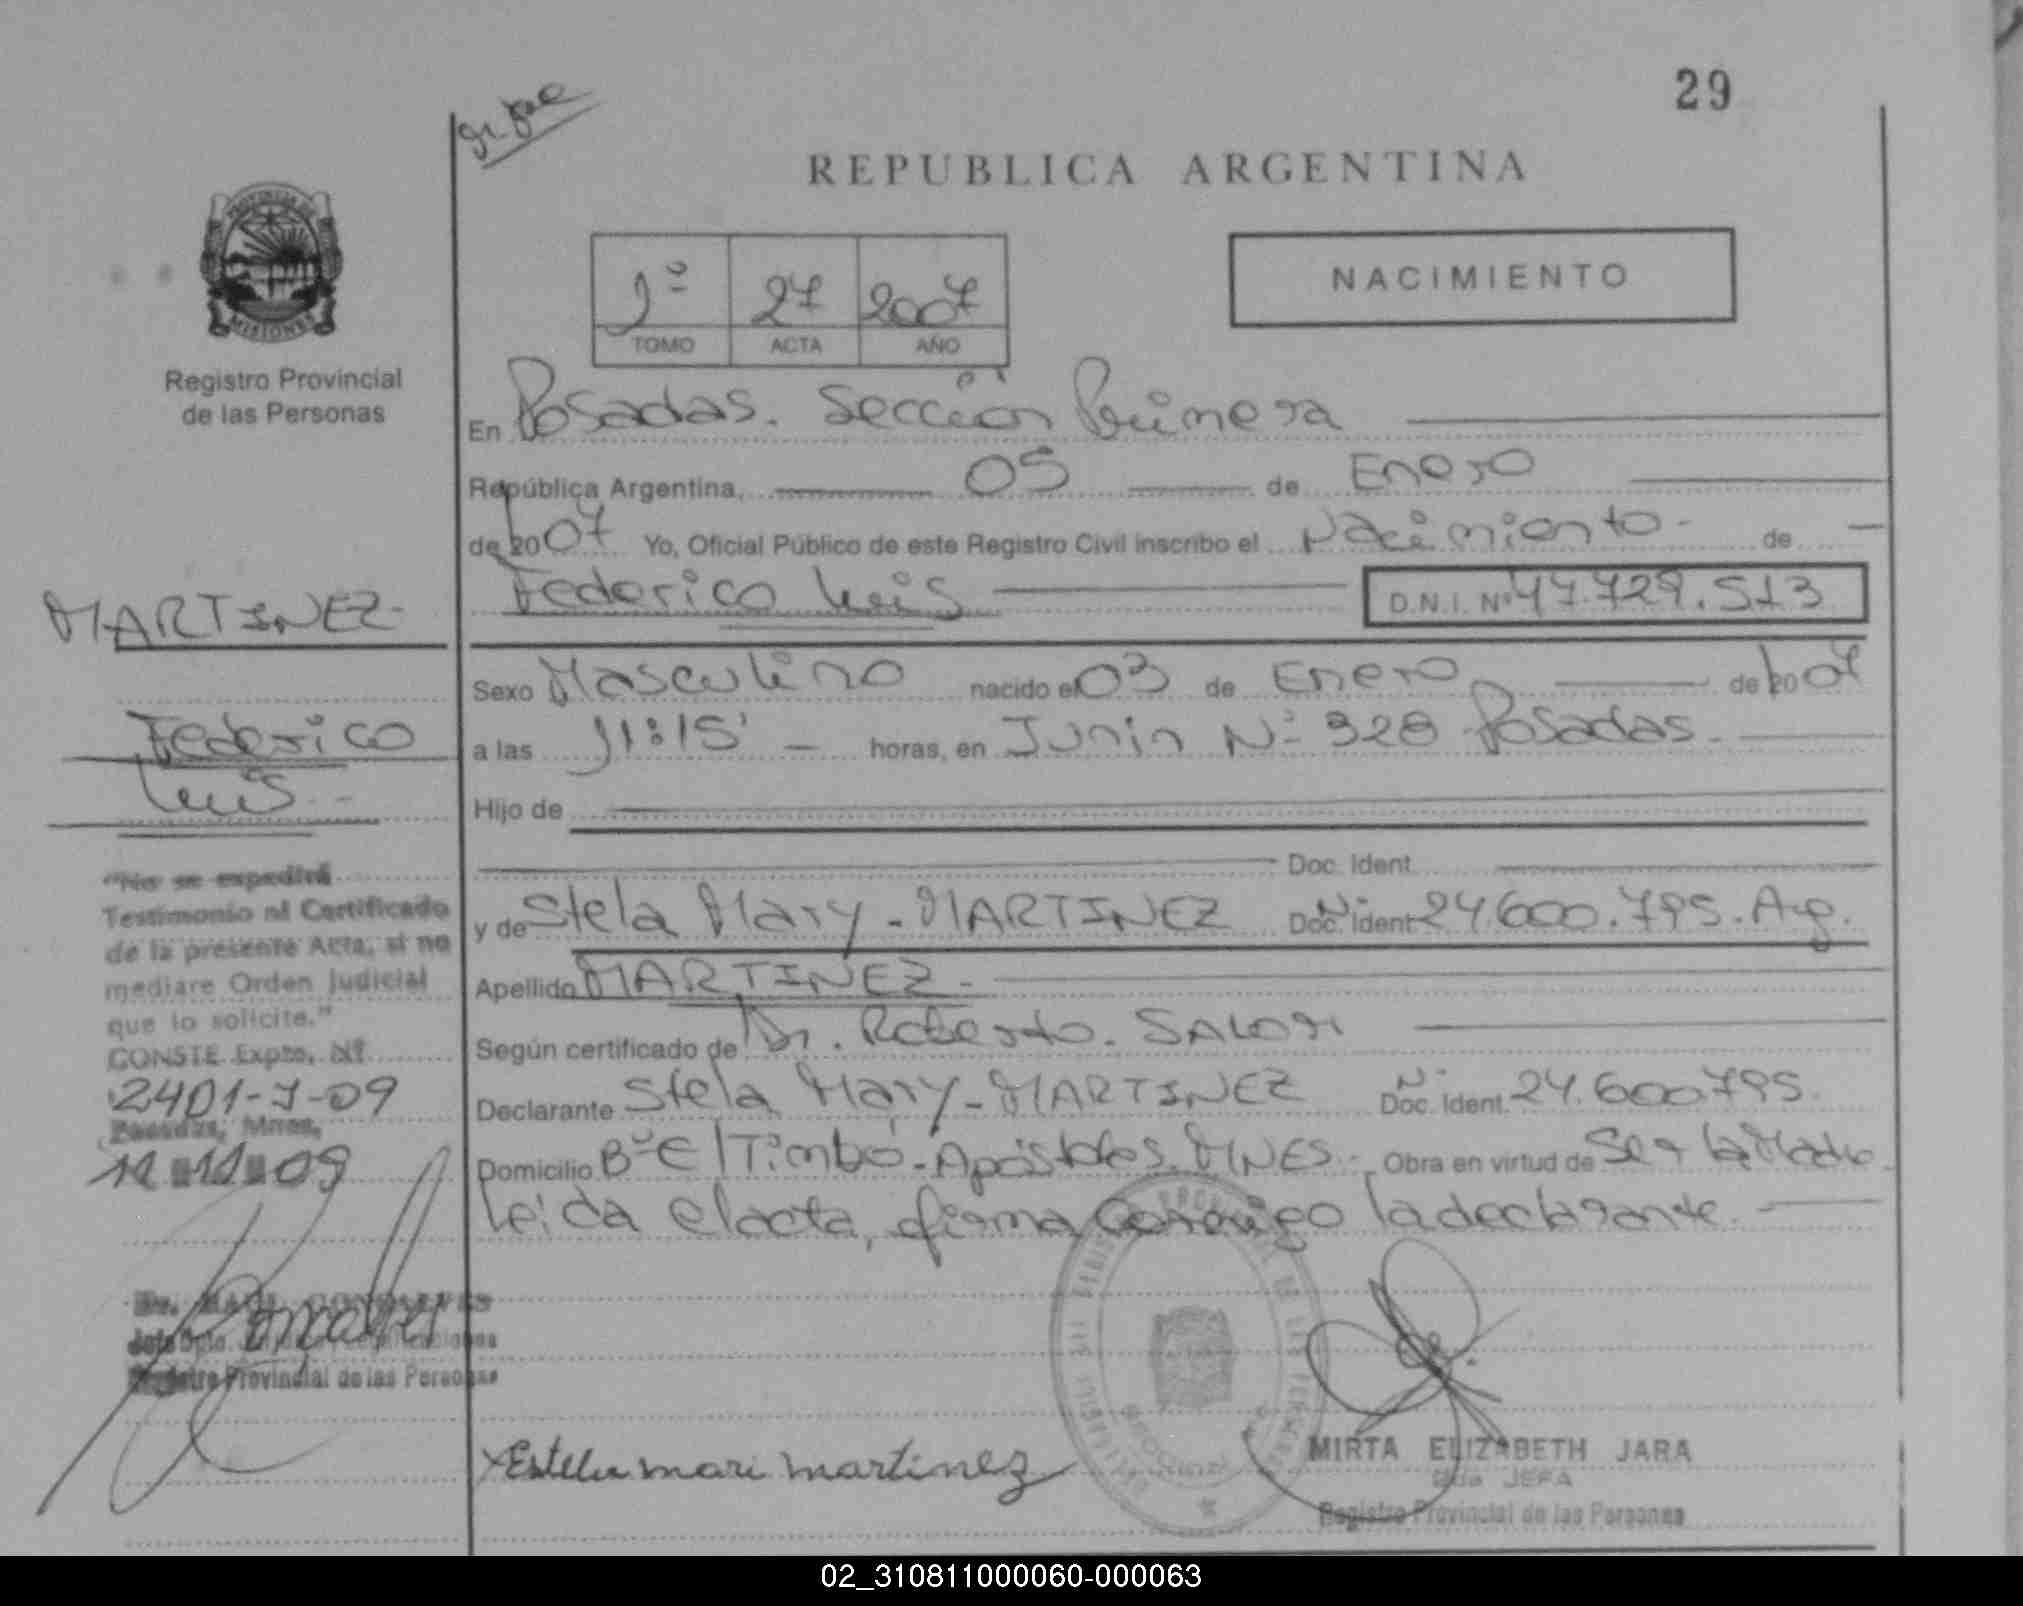 29
REPUBLICA ARGENTINA
PROVINCIA DE
MISIONES
Registro Provincial
de las Personas
1º 27 2007
TOMO ACTA AÑO
NACIMIENTO
En Posadas. Sección Primera
República Argentina, 05 de Enero
de 2007 Yo, Oficial Público de este Registro Civil inscribo el Nacimiento - de -
Federico Luis D.N.I. Nº 47.729.513
MARTINEZ-
Federico
Luis - -
Sexo Masculino nacido el 03 de Enero de 2007
a las 11:15' - horas, en Junin Nº 328 Posadas.
Hijo de
Doc. Ident.
y de Stela Mary - MARTINEZ Doc. Ident. Nº 24.600.795. Arg.
Apellido MARTINEZ -
Según certificado de Dr. Roberto.
Declarante Stela Mary - MARTINEZ Doc. Ident. Nº 24.600.795.
Domicilio Bº El Timbó - Apóstoles. MNES - Obra en virtud de Ser la Madre
Leída el acta, firma conmigo la declarante.
"No se expedirá
Testimonio ni Certificado
de la presente Acta, si no
mediare Orden Judicial
que lo solicite."
CONSTE Expte. Nº
2401-J-09
Posadas, Mnes,
11 11 09
Registro Provincial de las Personas
Estela mari martinez
MIRTA ELIZABETH JARA
2da JEFA
Registro Provincial de las Personas
02_310811000060-000063